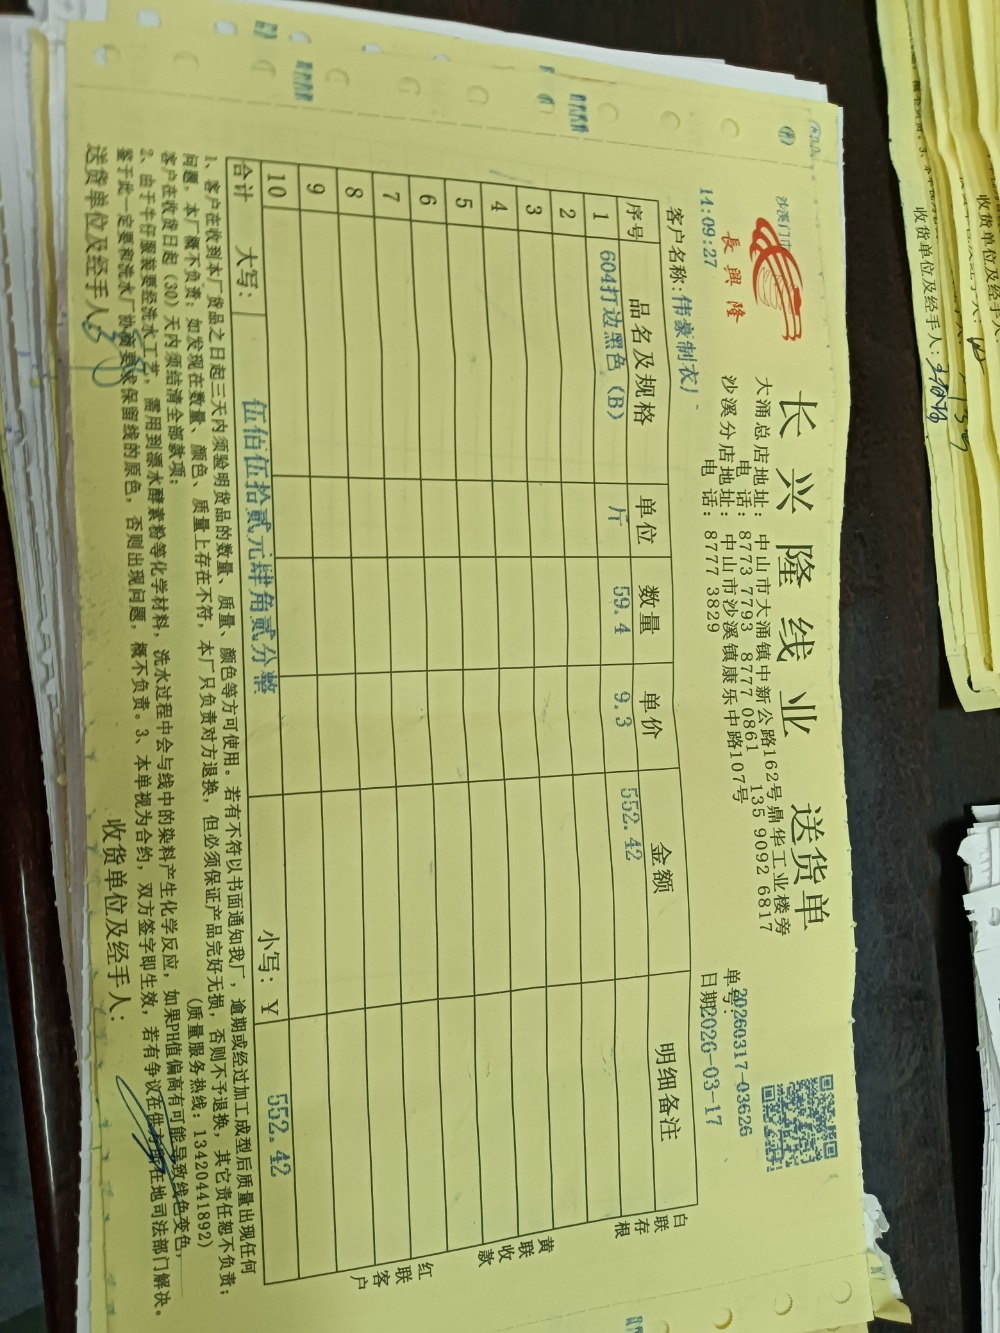 沙溪门市
長興隆
14:09:27
长兴隆线业 送货单
大涌总店地址: 中山市大涌镇中新公路162号鼎华工业楼旁
电 话: 8773 7793 8777 0861 135 9092 6817
沙溪分店地址: 中山市沙溪镇康乐中路107号
电 话: 8777 3829
单号: 20260317-03626
日期2026-03-17
客户名称: 伟豪制衣厂
序号 品名及规格 单位 数量 单价 金额 明细备注
1 604打边黑色 (B) 斤 59.4 9.3 552.42
2
3
4
5
6
7
8
9
10
合计 大写: 伍佰伍拾贰元肆角贰分整 小写: ¥ 552.42
白联存根
黄联收款
红联客户
1、客户在收到本厂货品之日起三天内须验明货品的数量、质量、颜色等方可使用。若有不符以书面通知我厂, 逾期或经过加工成型后质量出现任何
问题, 本厂概不负责; 如发现在数量、颜色、质量上存在不符, 本厂只负责对方退换, 但必须保证产品完好无损, 否则不予退换, 其它责任恕不负责;
客户在收货日起 (30) 天内须结清全部款项; (质量服务热线: 13420441892)
2、由于牛仔服装要经洗水工艺, 需用到漂水酵素粉等化学材料, 洗水过程中会与线中的染料产生化学反应, 如果PH值偏高有可能导致线色变色,
鉴于此一定要和洗水厂协商要求保留线的原色, 否则出现问题, 概不负责。3、本单视为合约, 双方签字即生效, 若有争议在供方所在地司法部门解决。
送货单位及经手人: 收货单位及经手人:
收货单位及经手人
收货单位及经手人: